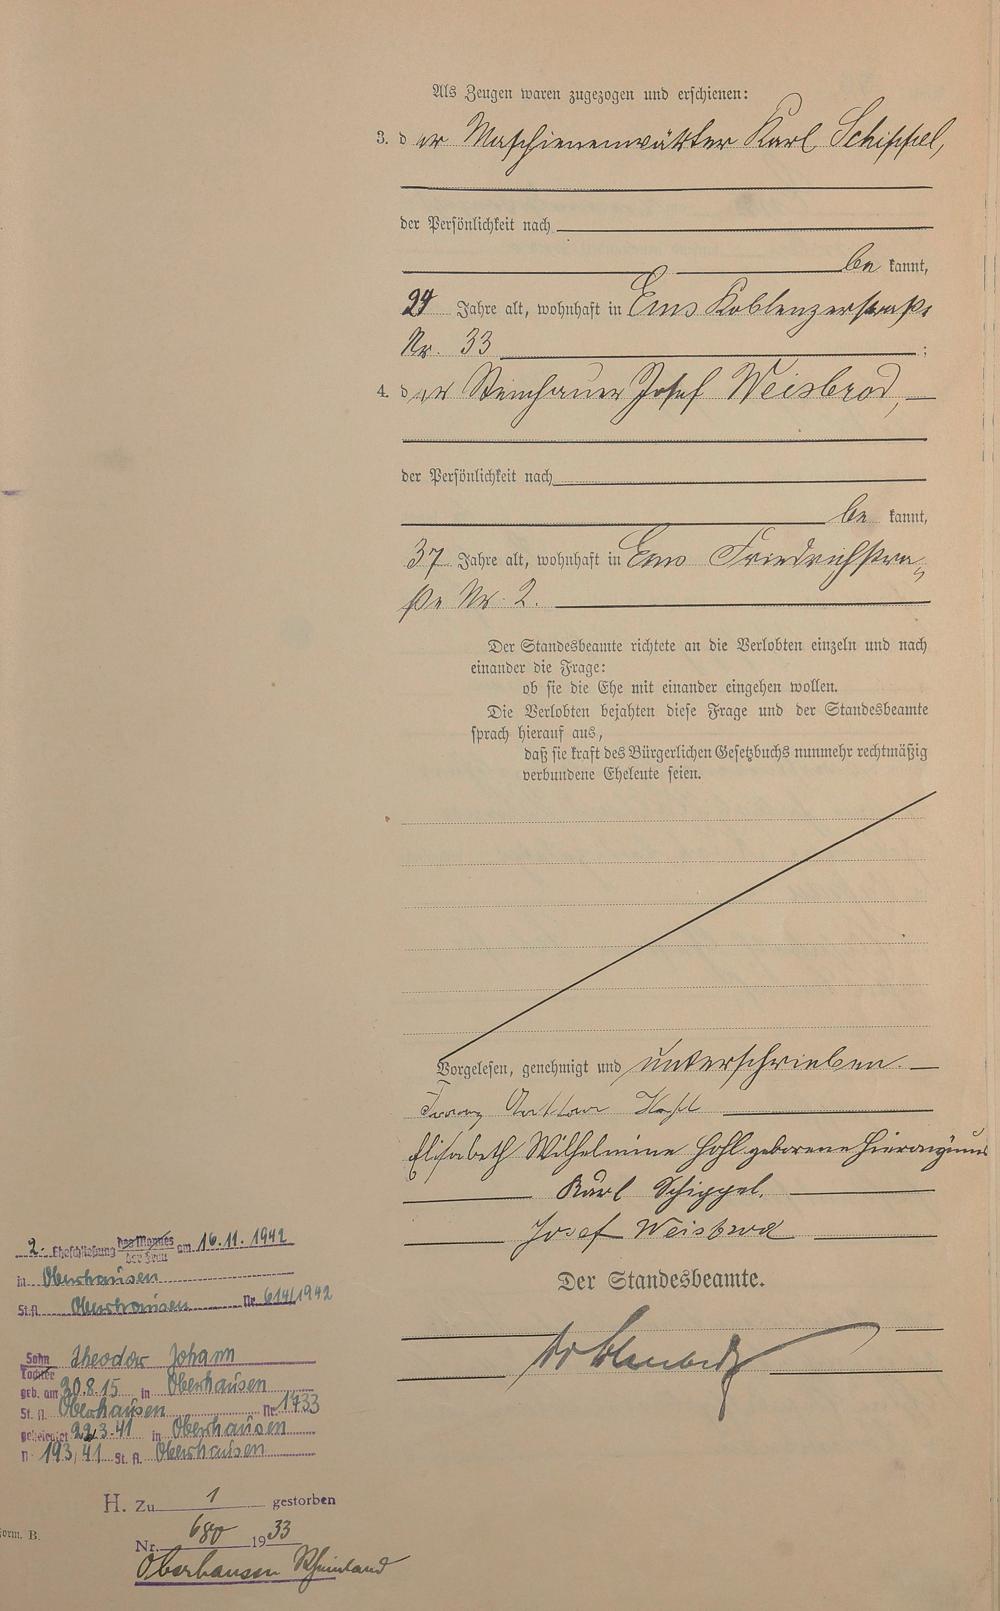 Als Zeugen waren zugezogen und erschienen:
3. der Maschienenwärter Karl Schippel,
der Persönlichkeit nach
be kannt,
24 Jahre alt, wohnhaft in Ems Koblenzerstraße
Nr. 33 ;
4. der Steinhauer Josef Weisbrod,
der Persönlichkeit nach
be kannt,
37 Jahre alt, wohnhaft in Ems Friedrichstra-
ße Nr. 2.
Der Standesbeamte richtete an die Verlobten einzeln und nach
einander die Frage:
ob sie die Ehe mit einander eingehen wollen.
Die Verlobten bejahten diese Frage und der Standesbeamte
sprach hierauf aus,
daß sie kraft des Bürgerlichen Gesetzbuchs nunmehr rechtmäßig
verbundene Eheleute seien.
Vorgelesen, genehmigt und unterschrieben.
Franz
Elisabeth Wilhelmine Hohl geborene Hieronÿmus
Karl Schippel.
Josef Weisbrod
Der Standesbeamte.
2. Eheschließung des Mannes am 16.11.1942
der Frau
in Oberhausen
St.A. Oberhausen Nr. 614/1942
Sohn Theodor Johann
Tochter
geb. am 30.8.15 in Oberhausen
St. A. Oberhausen Nr. 1733
geheiratet 22.3.41 in Oberhausen
Nr 193/41 St. A. Oberhausen
H. Zu 1 gestorben
Nr. 680 1933
Oberhausen Rheinland
Form. B.